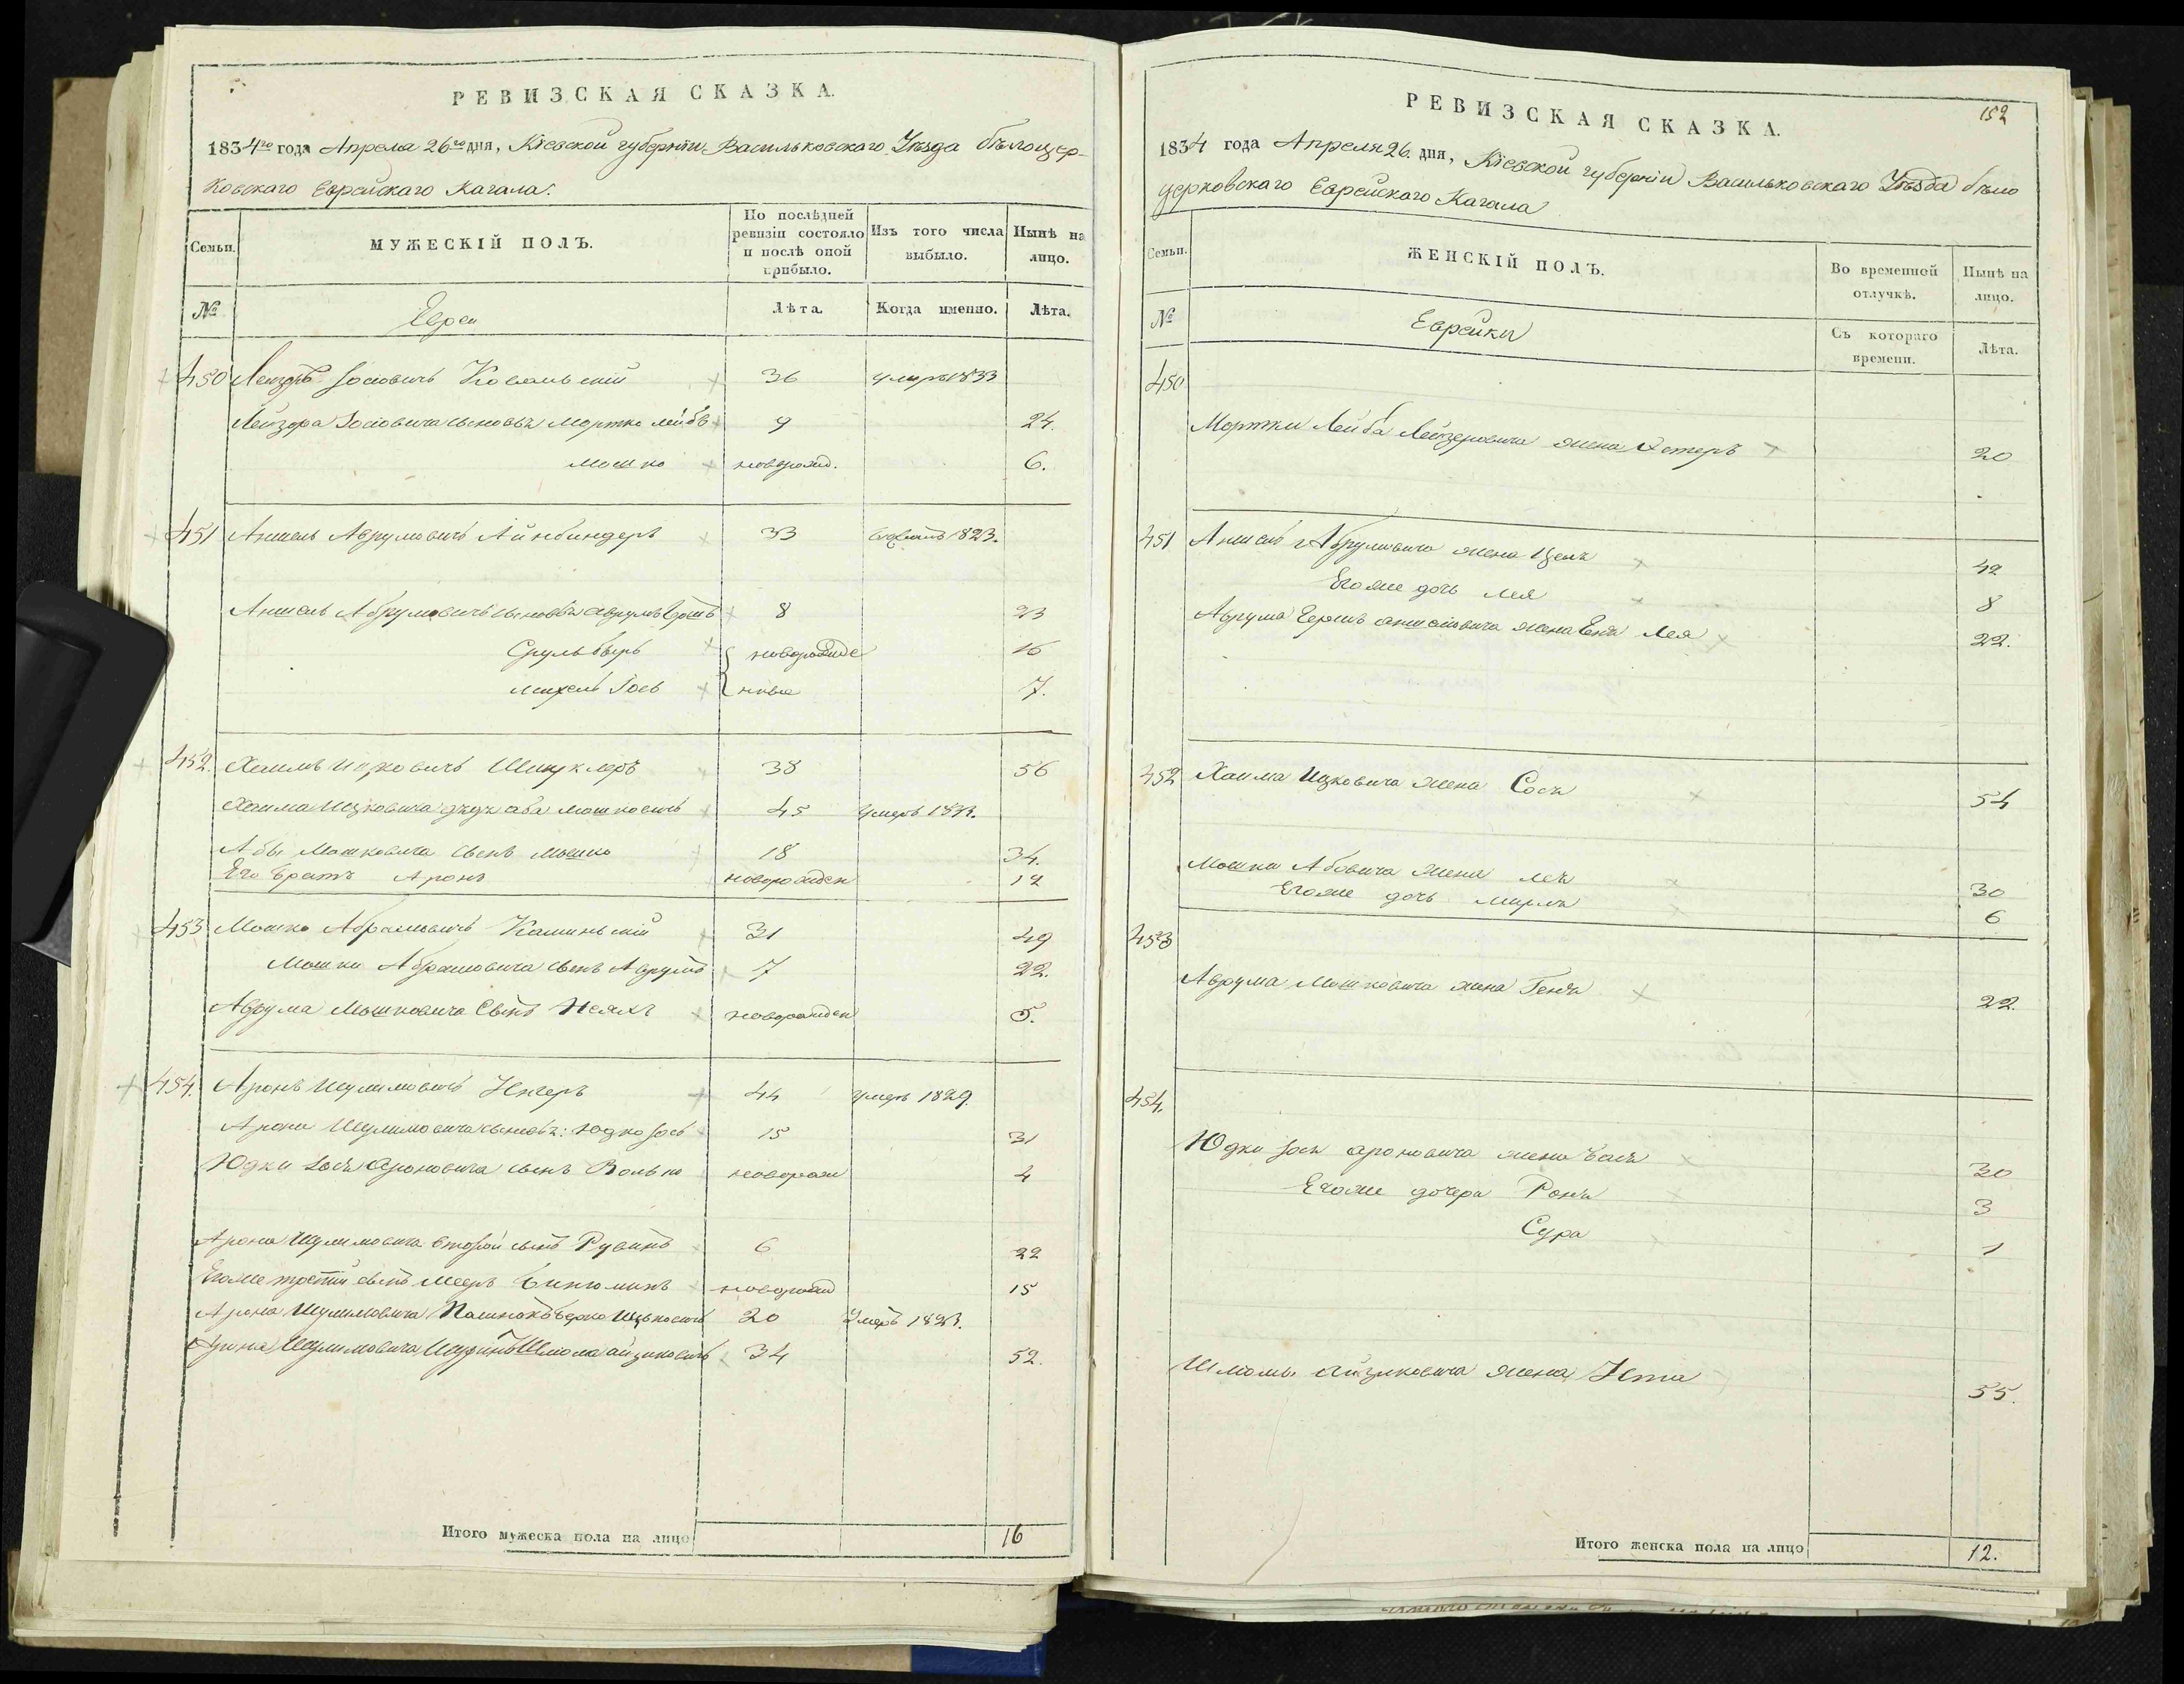 РЕВИЗСКАЯ СКАЗКА.
1834го года Апреля 26го дня, Кіевской губерніи Васильковскаго Уѣзда бѣлоцер-
ковскаго Еврейскаго Кагала.
Семьи.
МУЖЕСКІЙ ПОЛЪ.
По послѣдней ревизіи состояло и послѣ оной прибыло.
Изъ того числа выбыло.
Нынѣ на лицо.
№
Евреи
Лѣта.
Когда именно.
Лѣта.
450 Лейзоръ Іосіовичъ Ковальскій 36 умеръ 1833
Лейзора Іосіовича сыновья Мортко Лейбъ 9 24.
Мошко новорожд. 6.
451 Аншель Аврумовичъ Айнбиндеръ 33 1823.
Аншель Аврумовичъ сыновья Аврумъ Гершъ 8 23
Сруль Беръ новорожде 16
Михель Іосъ нные 7.
452. Хаимъ Ицковичъ Шкулеръ 38 56
Хаима Ицковича дядя Аба Мошковичъ 45 умеръ
Абы Мошковича сынъ Мошко 18 34.
Его братъ Аронъ новорожден 12
453 Мошко Абрамовичъ Каминьскій 31 49
Мошки Абрамовича сынъ Аврумъ 7 22.
Аврума Мошковича сынъ новорожден 5.
454. Аронъ Шулимовичъ 44 умеръ 1829.
Арона Шулимовича сыновья: Юдко Іосъ 15 31
Юдки Іося Ароновича сынъ Волько новорож 4
Арона Шулимовича второй сынъ Рувинъ 6 22
Егоже третій сынъ Мееръ Биніоминъ новорожд 15
Арона Шулимовича Берко Ицковичъ 20 умеръ 1823.
Арона Шулимовича Шуринъ Шлома Айзиковичъ 34 52.
Итого мужеска пола на лицо 16
152
РЕВИЗСКАЯ СКАЗКА.
1834 года Апреля 26. дня, Кіевской губерніи Васильковскаго Уѣзда бѣло
церковскаго Еврейскаго Кагала
Семьи.
ЖЕНСКІЙ ПОЛЪ.
Во временной отлучкѣ.
Нынѣ на лицо.
№
Еврейки
Съ котораго времени.
Лѣта.
450
Мортки Лейба Лейзеровича жена Эстеръ 20
451 Аншеля Аврумовича жена 42
Егоже дочь Лея 8
Аврума Герша Аншеловича жена Лея 22.
452 Хаима Ицковича жена Сося 54
Мошки Абовича жена Лея 30
Егоже дочь Мирля 6
453
Аврума Мошковича жена Геня 22.
454.
Юдки Іося Ароновича жена Бася 30
Егоже дочери Роня 3
Сура 1
Шломы Айзиковича жена Ита 55.
Итого женска пола на лицо 12.